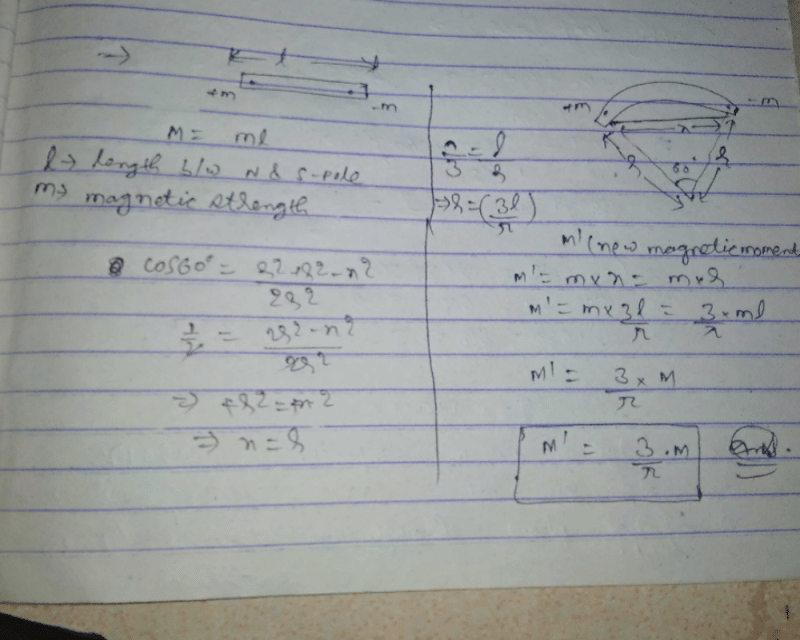 → l
+m -m
M = ml
l → length b/w N & S-pole
m → magnetic strength
cos60° = r²+r²-x² / 2r²
1/2 = 2r²-x² / 2r²
⇒ r² = x²
⇒ x = r
π/3 = l/r
⇒ r = (3l/π)
+m -m
x
r 60° r
M' (new magnetic moment
M' = m×x = m×r
M' = m×3l/π = 3/π × ml
M' = 3/π × M
M' = 3/π . M Ans.